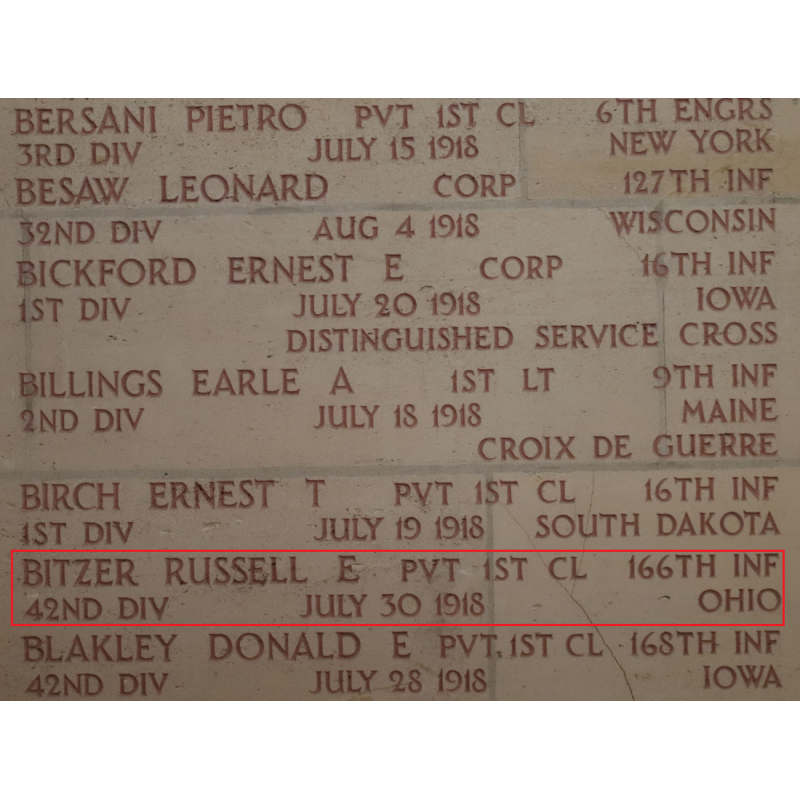 BERSANI PIETRO PVT 1ST CL 6TH ENGRS
3RD DIV JULY 15 1918 NEW YORK
BESAW LEONARD CORP 127TH INF
32ND DIV AUG 4 1918 WISCONSIN
BICKFORD ERNEST E CORP 16TH INF
1ST DIV JULY 20 1918 IOWA
DISTINGUISHED SERVICE CROSS
BILLINGS EARLE A 1ST LT 9TH INF
2ND DIV JULY 18 1918 MAINE
CROIX DE GUERRE
BIRCH ERNEST T PVT 1ST CL 16TH INF
1ST DIV JULY 19 1918 SOUTH DAKOTA
BITZER RUSSELL E PVT 1ST CL 166TH INF
42ND DIV JULY 30 1918 OHIO
BLAKLEY DONALD E PVT 1ST CL 168TH INF
42ND DIV JULY 28 1918 IOWA